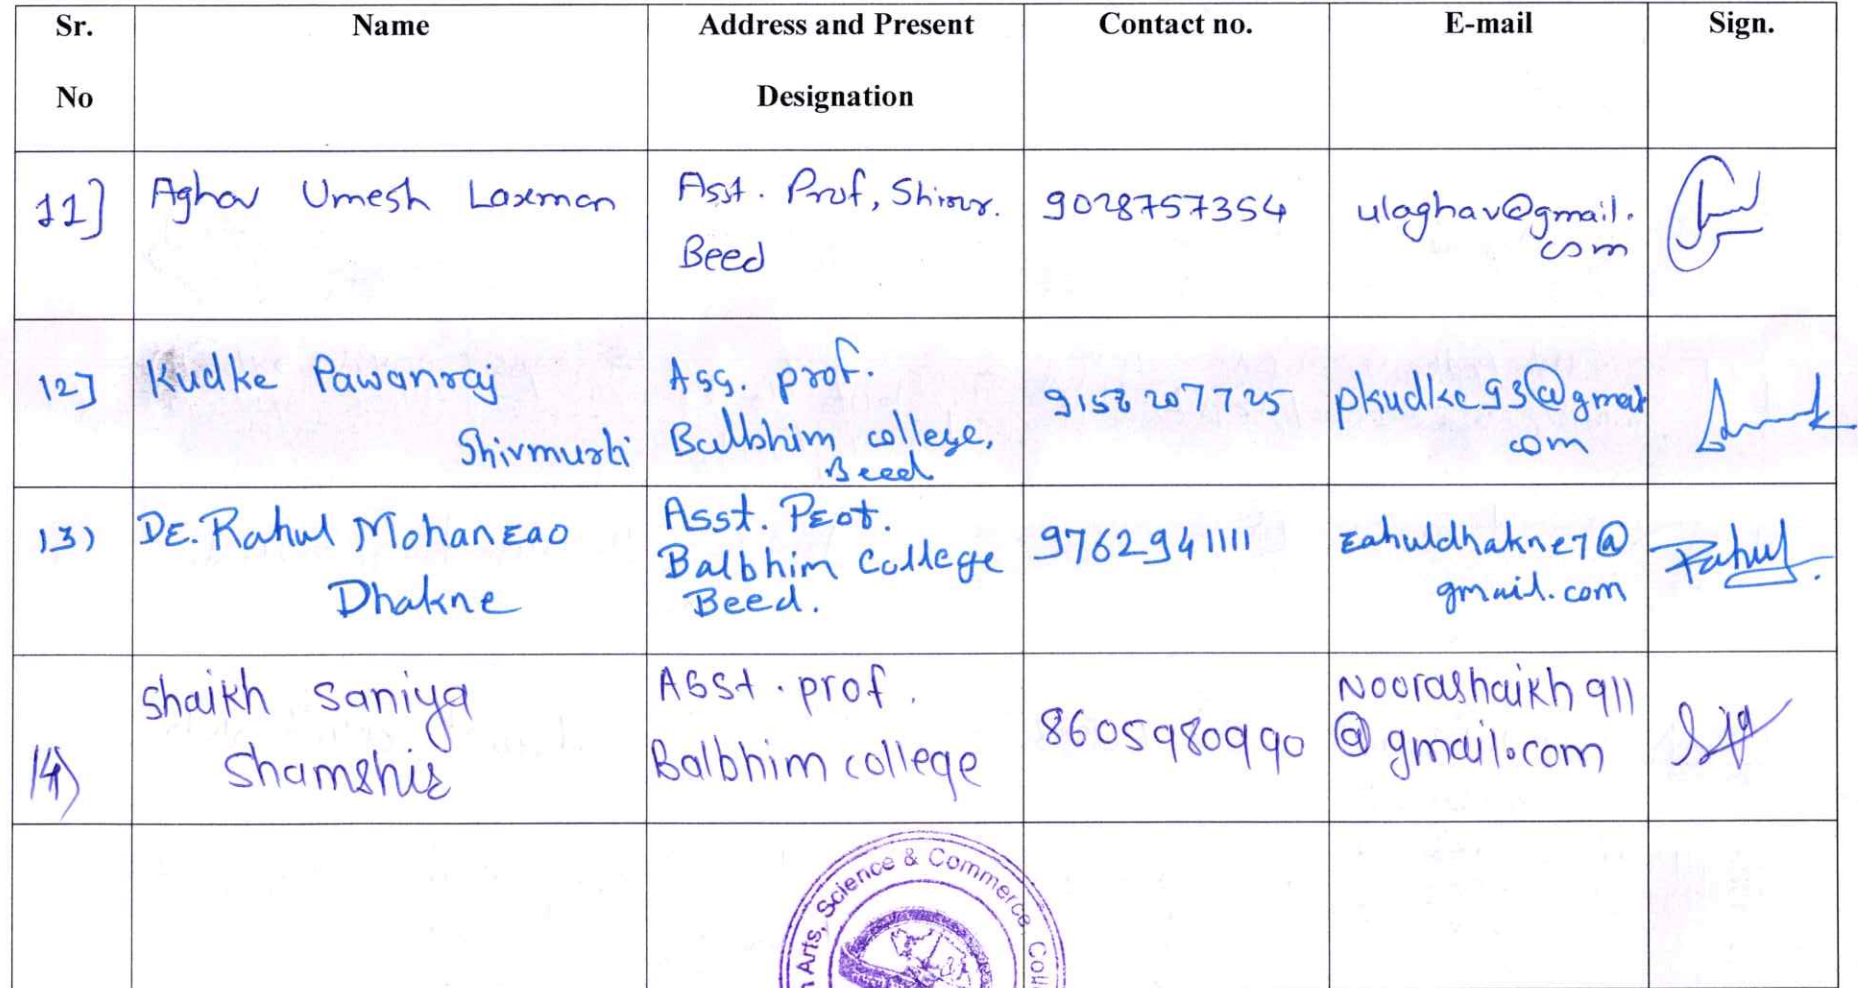 Sr. No
Name
Address and Present Designation
Contact no.
E-mail
Sign.
11]
Aghav Umesh Laxman
Asst. Prof, Shirur.
Beed
9028757354
ulaghav@gmail.
com
12]
Kudke Pawanraj
Shivmurti
Ass. prof.
Balbhim college,
Beed
pkudke93@gmail
com
13)
Dr. Rahul Mohanrao
Dhakne
Asst. Prof.
Balbhim College
Beed.
9762941111
rahuldhakne7@
gmail.com
Rahul
14)
Shaikh Saniya
Shamshir
Asst. prof.
Balbhim college
8605980990
Noorashaikh911
@gmail.com
Arts, Science & Commerce